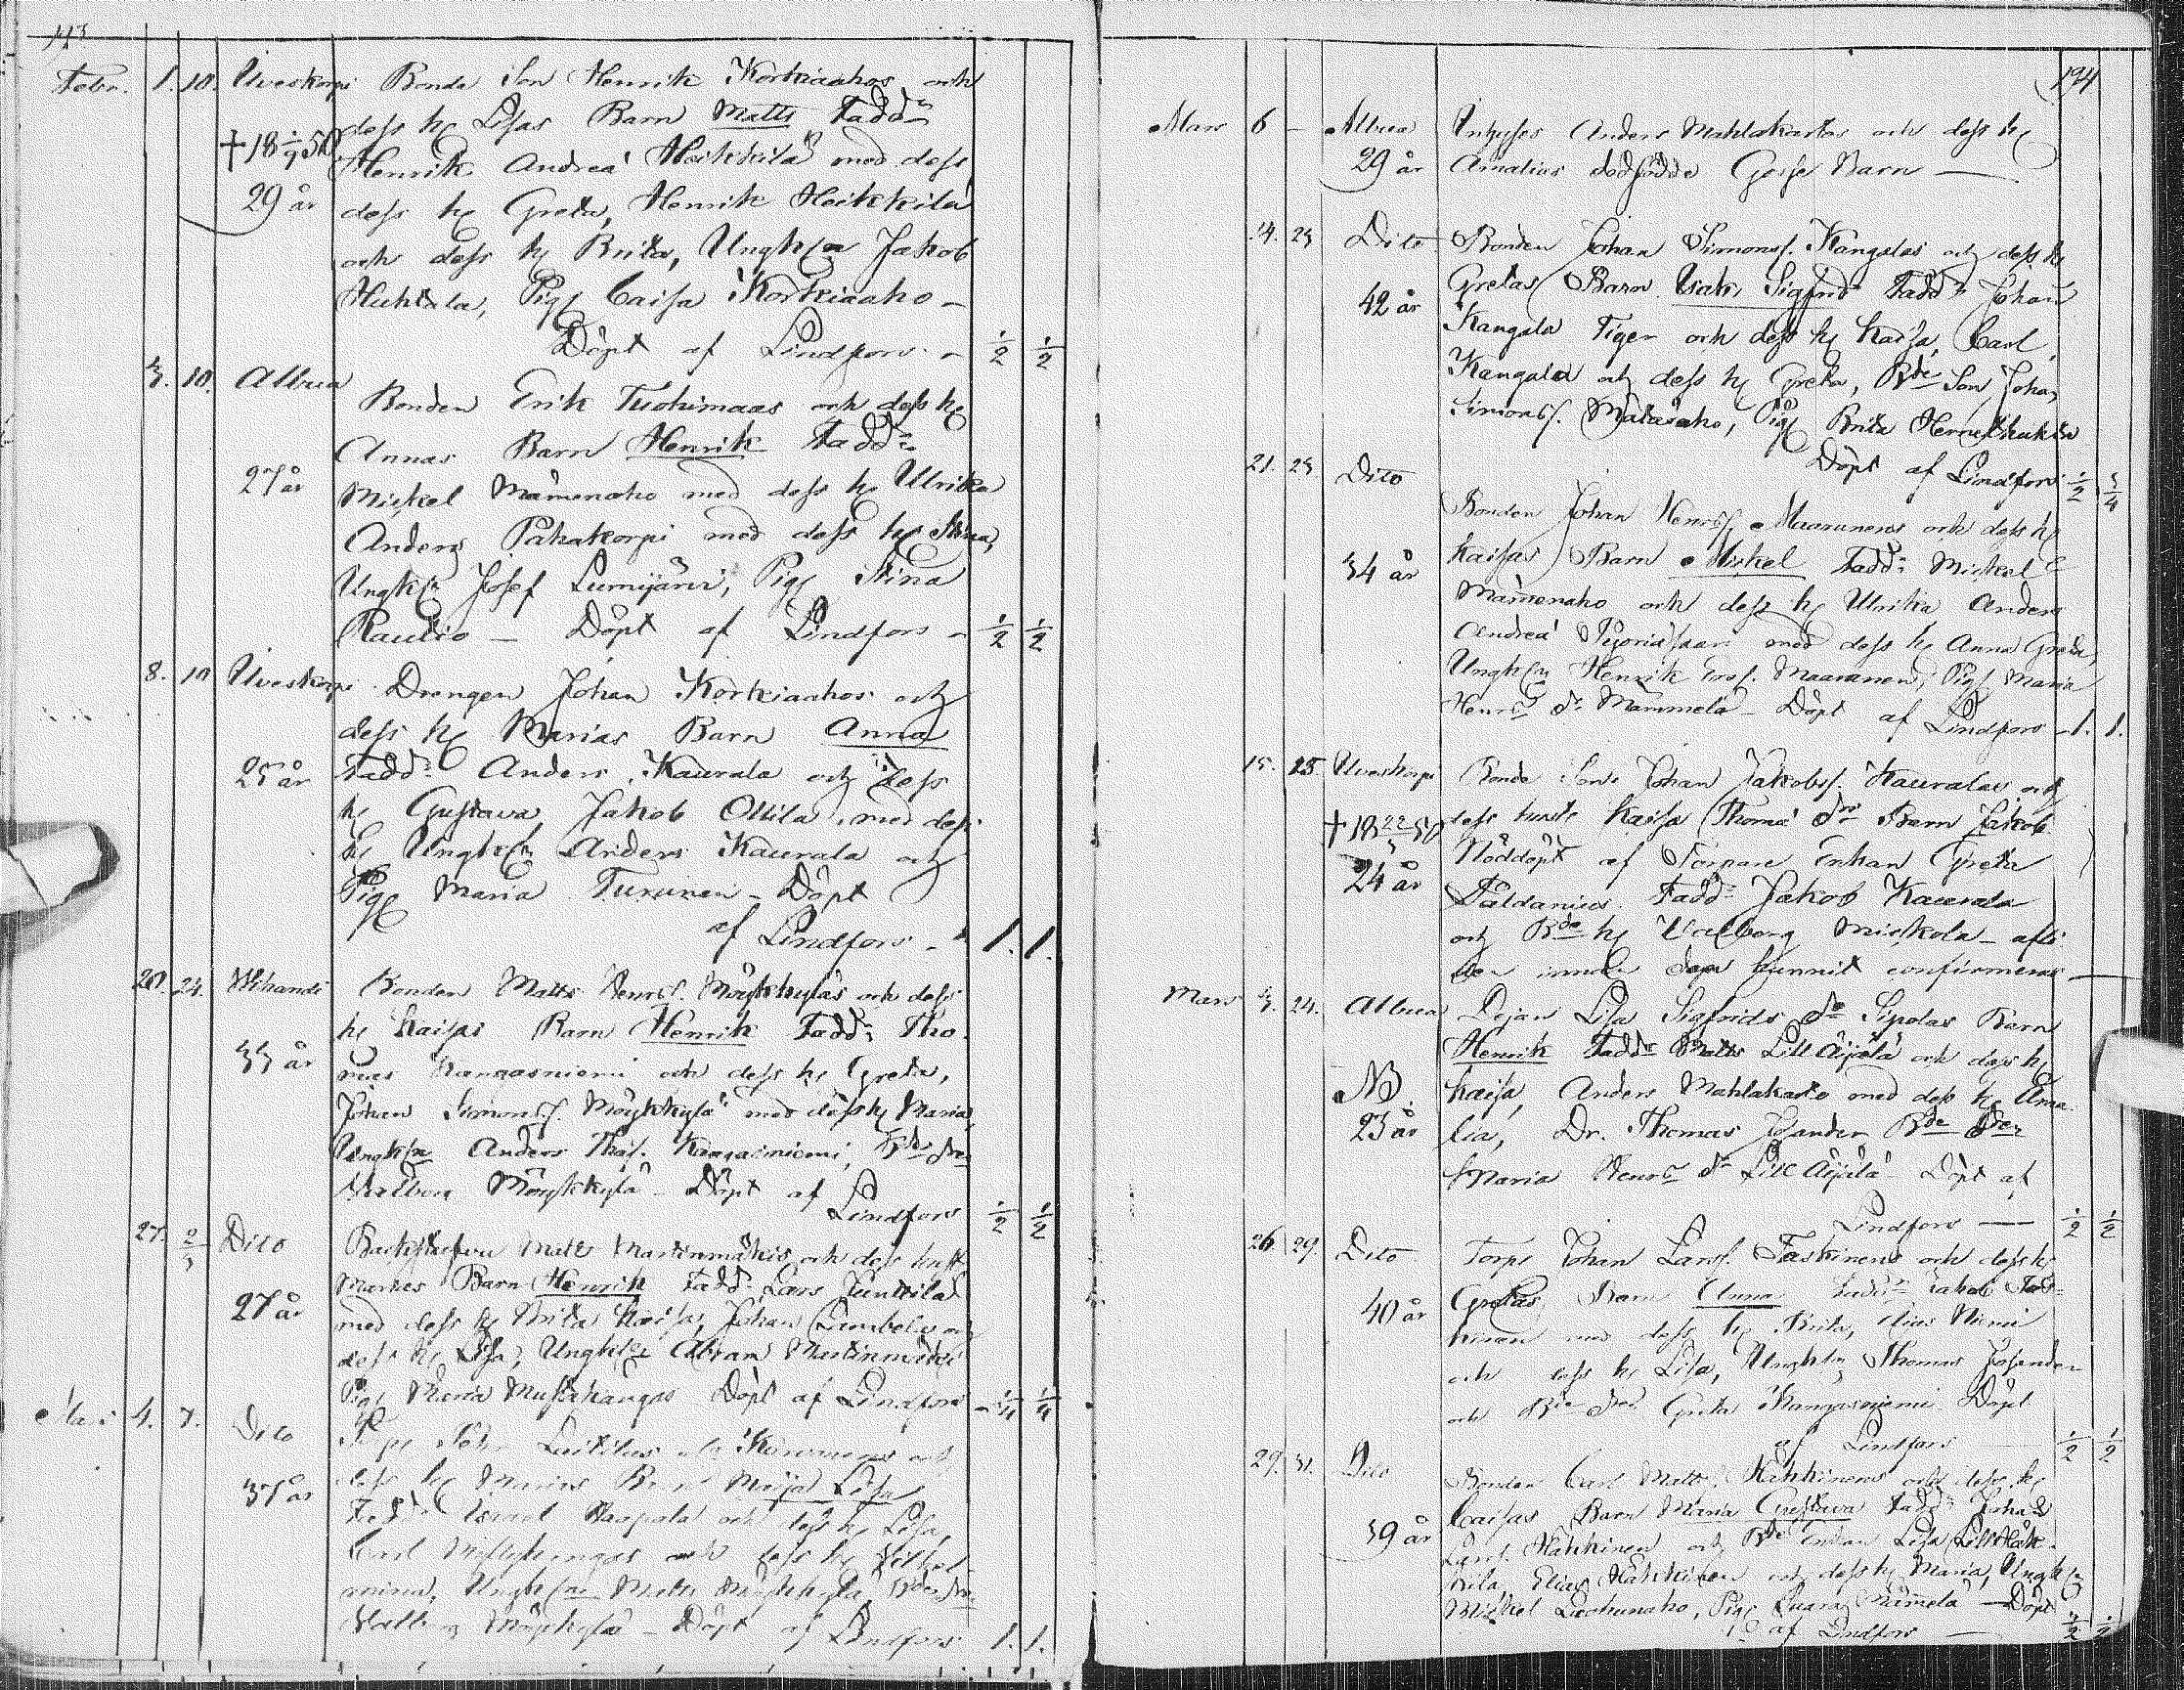 193
Febr. 1. 10. Uveskorpi Bonde Son Henrik Korkiaahos och
dess h: Lisas Barn Matts Fadd:
Henrik Andreæ Heikkilä med dess
29 år dess h: Greta, Henrik Heikkilä
och dess h: Brita, Ungk: Jakob
Huhtala, Pig: Caisa Korkiaaho –
Döpt af Lindfors – 1/2 1/2
3. 10. Albua
Bonden Erik Tuohimaas och dess h:
Annas Barn Henrik Fadd:
27 år Mickel Mämenaho med dess h: Ulrika
Anders Pahakorpi med dess h: Stina,
Ungk: Josef Lumijärvi, Pig: Stina
Rautio – Döpt af Lindfors – 1/2 1/2
8. 10 Uveskorpi Drengen Johan Korkiaahos och
dess h: Marias Barn Anna
25 år Fadd: Anders Kaurala och dess
h: Gustava Jakob Ollila, med dess
h: Ungk: Anders Kaurala och
Pig: Maria Turunen – Döpt
af Lindfors – 1. 1.
20. 24. Wihandi Bonden Matts Henrss. Möykkyläs och dess
h: Kaisas Barn Henrik Fadd: Tho-
33 år mas Kangasniemi och dess h: Greta,
Johan Simonss. Möykkylä med dess h: Maria,
Ungk: Anders Thss. Kangasniemi, Bde
Walborg Möykkylä – Döpt af
Lindfors 1/2 1/2
27. 2/3 Dito Matts Martinmäkis och dess hust
Maries Barn Henrik Fadd: Lars Junttila
27 år med dess h: Brita Kaisa, Johan Lambela och
dess h: Lisa, Ungk: Abram Martinmäki
Pig: Maria Mustakangas Döpt af Lindfors – 1/4 1/4
Mars 4. 7. Dito
dess h: Marias Barn Maija Lisa
37 år Fadd: Israel Haapala och dess h: Lisa,
Carl och dess h: Wilhel-
mina, Ungk: Matts Möykkylä, Bde
Walborg Möykkylä – Döpt af Lindfors 1. 1.
194
Mars 6 – Albua Inhyses Anders Mahlakartos och dess h:
29 år Amalias dödfödde Gosse Barn –
14. 23 Dito Bonden Johan Simonss. Kangalas och dess h:
Gretas Barn Isak Sigfrid Fadd: Johan
42 år Kangala Tiger och dess h: Kaisa, Carl
Kangala och dess h: Greta, Bde Son Johan
Simonss. Mataraho, Pig: Brita
Döpt af Lindfors 1/2 3/4
21. 23 Dito
Bonden Johan Henrss. Maarunens och dess h:
34 år Kaisas Barn Mickel Fadd: Mickel
Mämmenaho och dess h: Ulrika Anders
Andreæ Pyöriäsaari med dess h: Anna Greta,
Ungk: Henrik Maaranen, Pig: Maria
Henrs dr Mämmelä – Döpt af Lindfors – 1. 1.
15. 25. Uveskorpi Bonde Sons Johan Jakobss. Kauralas och
dess hustr Kaisa Thomæ dr Barn Jakob
24 år Nöddöpt af Torpare Enkan Greta
Paldanius. Fadd: Jakob Kaurala
och Bde h: Walborg Mickola –
confirmeras –
Mars 3. 24. Albua Pigan Lisa Sigfrids dr Sipolas Barn
Henrik Fadd: Matts Lill Äijälä och dess h:
NB. Kaisa, Anders Mahlakarto med dess h: Ama
23 år lia, Dr. Thomas Josander Bde
Maria Henrs dr Lill Äijälä Döpt af
Lindfors – 1/2 1/2
26. 29. Dito Torp: Johan Larss. Taskinens och dess h:
40 år Gretas Barn Anna Fadd: Jakob Tas-
kinen med dess h: Brita, Elias Niemi
och dess h: Lisa, Ungk: Thomas Josander
och Bde Greta Kangasniemi Döpt
af Lindfors 1/2 1/2
29. 31. Dito
Bonden Carl Matts. Häkkinens och dess h:
39 år Caisas Barn Maria Gustava Fadd: Johan
Larss. Häkkinen och Bde Enkan Lisa
Elias Häkkinen och dess h: Maria, Ungk:
Mickel, Pig: Mämelä – Döpt
af Lindfors – 1/2 1/2